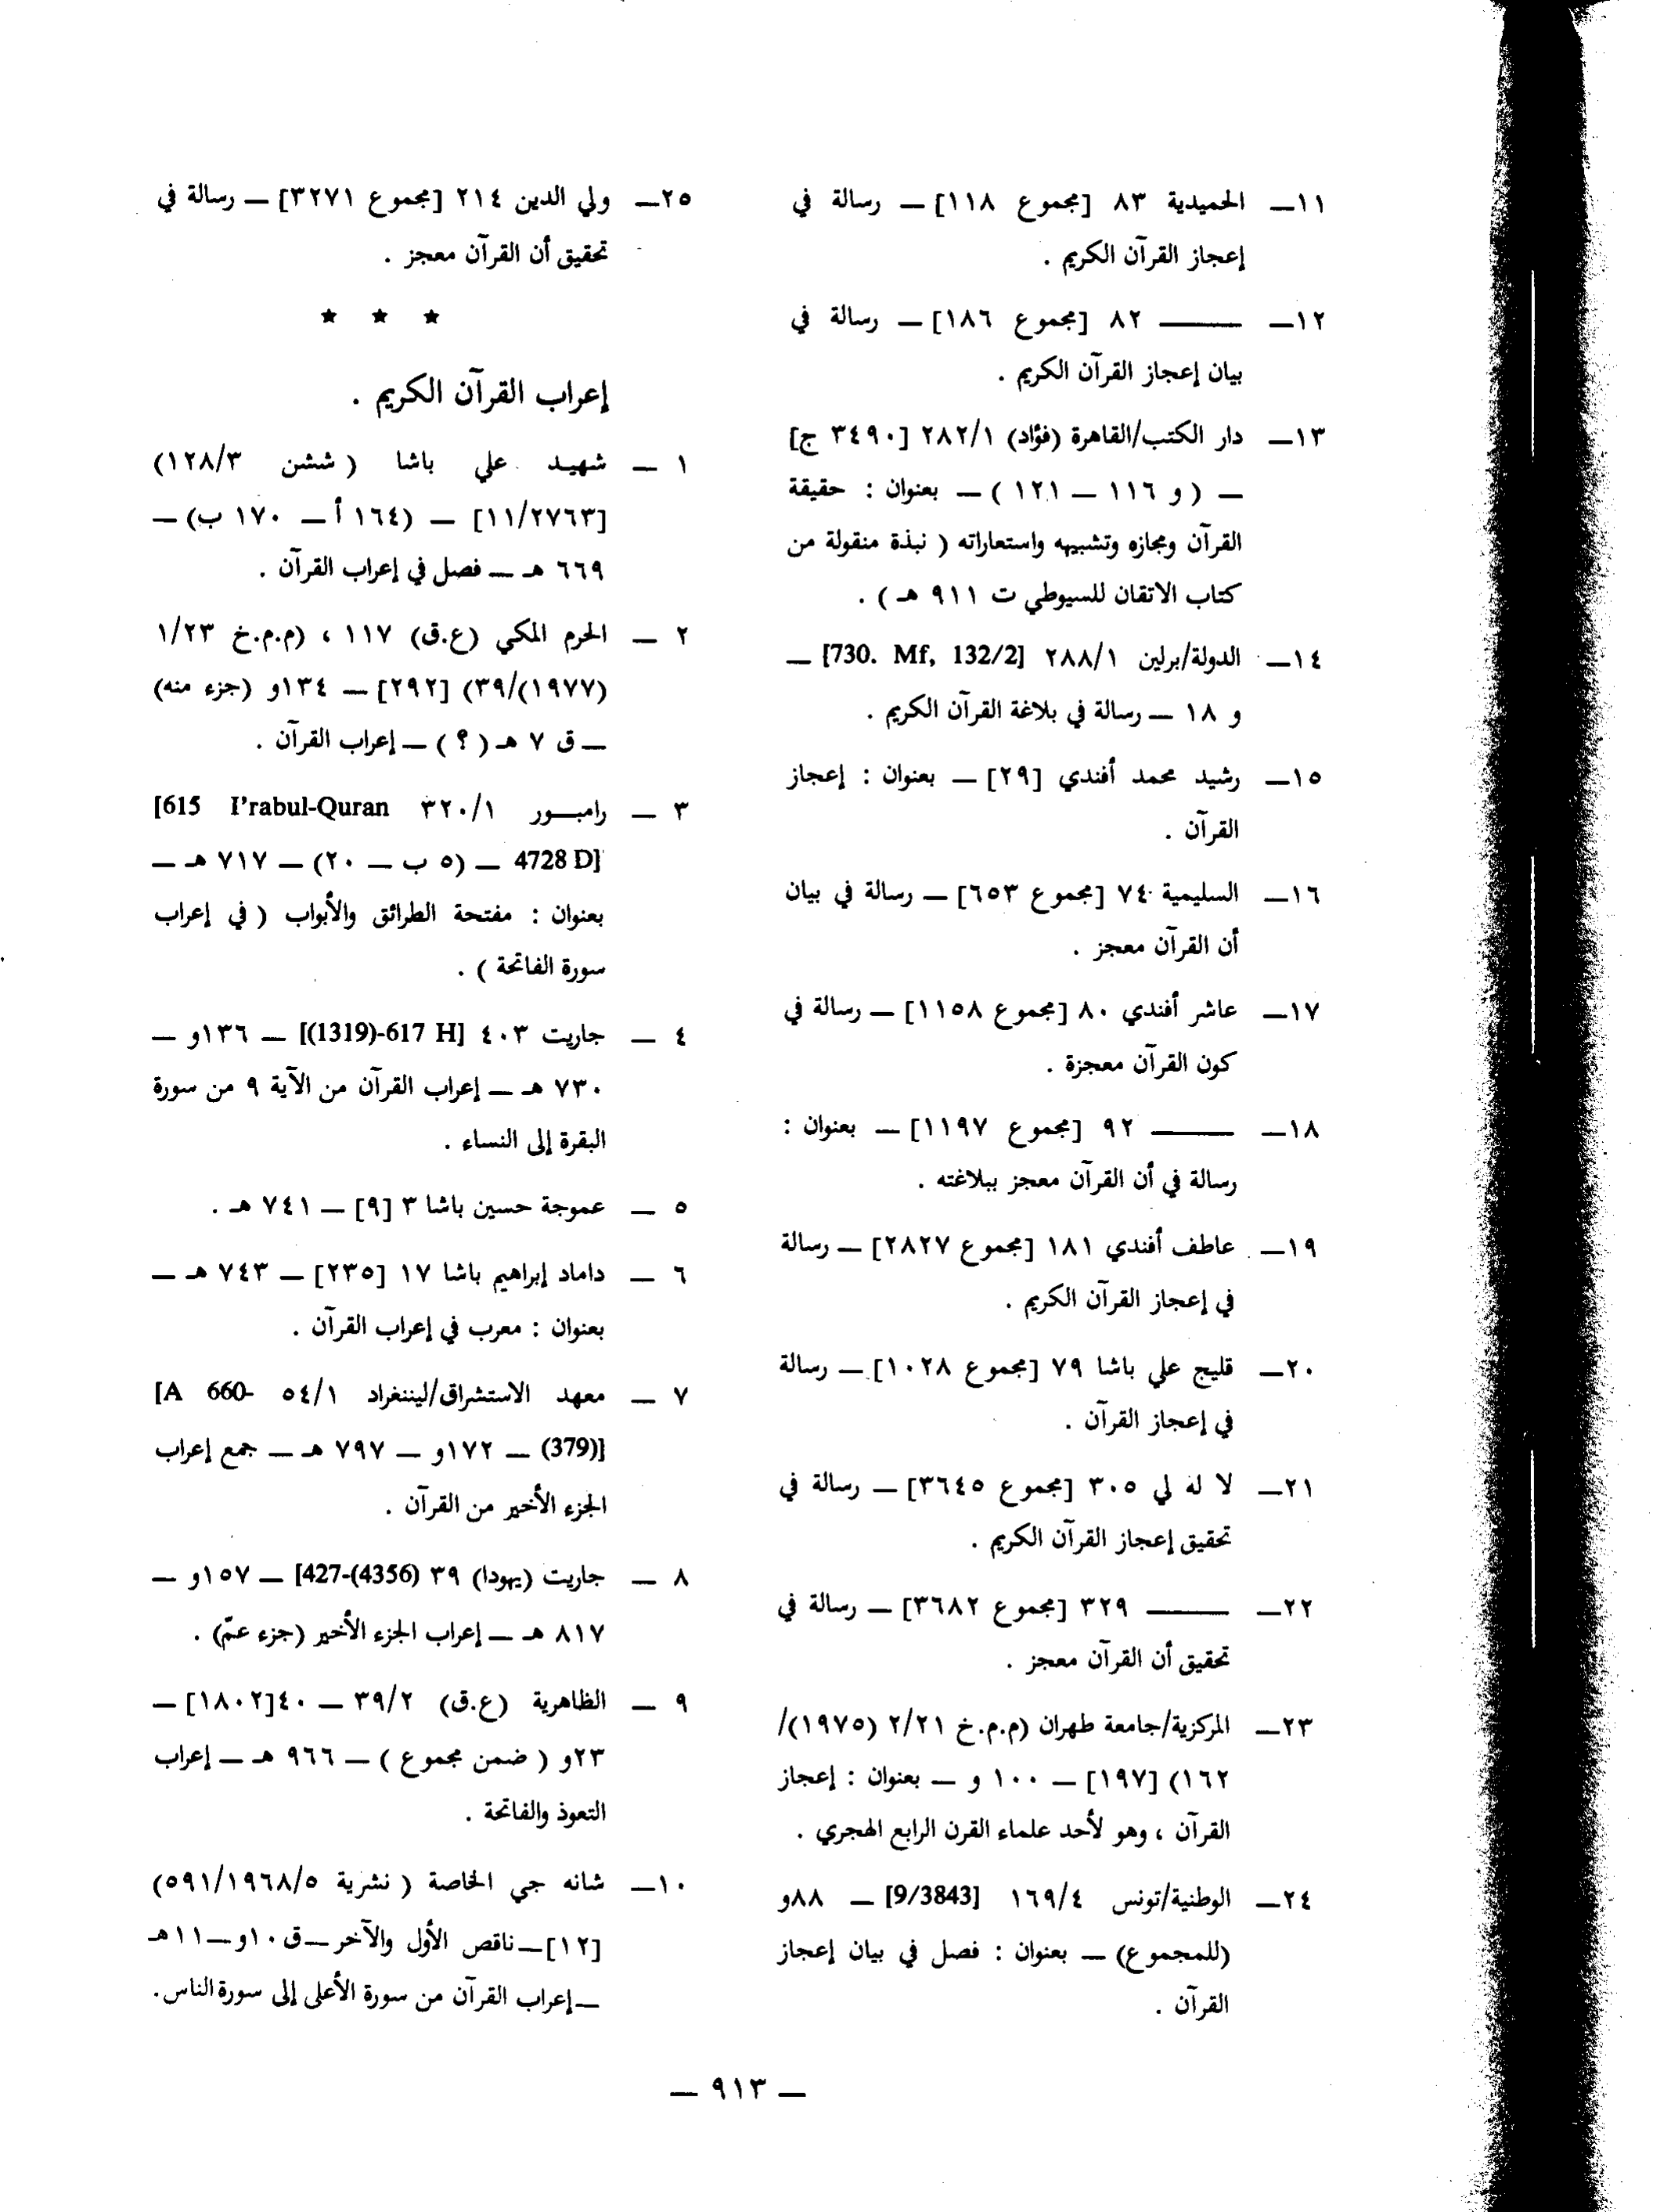 ١١ـ الحميدية ٨٣ [مجموع ١١٨] ـ رسالة في
إعجاز القرآن الكريم .
١٢ـ ــــــ ٨٢ [مجموع ١٨٦] ـ رسالة في
بيان إعجاز القرآن الكريم .
١٣ـ دار الكتب/القاهرة (فؤاد) ٢٨٢/١ [٣٤٩٠ ج]
ـ ( و ١١٦ ـ ١٢١ ) ـ بعنوان : حقيقة
القرآن ومجازه وتشبيهه واستعاراته ( نبذة منقولة من
كتاب الاتقان للسيوطي ت ٩١١ هـ ) .
١٤ـ الدولة/برلين ٢٨٨/١ [730. Mf, 132/2] ـ
و ١٨ ـ رسالة في بلاغة القرآن الكريم .
١٥ـ رشيد محمد أفندي [٢٩] ـ بعنوان : إعجاز
القرآن .
١٦ـ السليمية ٧٤ [مجموع ٦٥٣] ـ رسالة في بيان
أن القرآن معجز .
١٧ـ عاشر أفندي ٨٠ [مجموع ١١٥٨] ـ رسالة في
كون القرآن معجزة .
١٨ـ ــــــ ٩٢ [مجموع ١١٩٧] ـ بعنوان :
رسالة في أن القرآن معجز ببلاغته .
١٩ـ عاطف أفندي ١٨١ [مجموع ٢٨٢٧] ـ رسالة
في إعجاز القرآن الكريم .
٢٠ـ قليج علي باشا ٧٩ [مجموع ١٠٢٨] ـ رسالة
في إعجاز القرآن .
٢١ـ لا له لي ٣٠٥ [مجموع ٣٦٤٥] ـ رسالة في
تحقيق إعجاز القرآن الكريم .
٢٢ـ ــــــ ٣٢٩ [مجموع ٣٦٨٢] ـ رسالة في
تحقيق أن القرآن معجز .
٢٣ـ المركزية/جامعة طهران (م.م.خ ٢/٢١ (١٩٧٥)/
١٦٢) [١٩٧] ـ ١٠٠ و ـ بعنوان : إعجاز
القرآن ، وهو لأحد علماء القرن الرابع الهجري .
٢٤ـ الوطنية/تونس ١٦٩/٤ [9/3843] ـ ٨٨و
(للمجموع) ـ بعنوان : فصل في بيان إعجاز
القرآن .
٢٥ـ ولي الدين ٢١٤ [مجموع ٣٢٧١] ـ رسالة في
تحقيق أن القرآن معجز .
★ ★ ★
إعراب القرآن الكريم .
١ ـ شهيد علي باشا ( ششن ١٢٨/٣)
[١١/٢٧٦٣] ـ (١٦٤ أ ـ ١٧٠ ب) ـ
٦٦٩ هـ ـ فصل في إعراب القرآن .
٢ ـ الحرم المكي (ع.ق) ١١٧ ، (م.م.خ ١/٢٣
(١٩٧٧)/٣٩) [٢٩٢] ـ ١٣٤و (جزء منه)
ـ ق ٧ هـ ( ؟ ) ـ إعراب القرآن .
٣ ـ رامبـور ٣٢٠/١ [615 I'rabul-Quran
4728 D] ـ (٥ ب ـ ٢٠) ـ ٧١٧ هـ ـ
بعنوان : مفتحة الطرائق والأبواب ( في إعراب
سورة الفاتحة ) .
٤ ـ جاريت ٤٠٣ [(1319)-617 H] ـ ١٣٦و ـ
٧٣٠ هـ ـ إعراب القرآن من الآية ٩ من سورة
البقرة إلى النساء .
٥ ـ عموجة حسين باشا ٣ [٩] ـ ٧٤١ هـ .
٦ ـ داماد إبراهيم باشا ١٧ [٢٣٥] ـ ٧٤٣ هـ ـ
بعنوان : معرب في إعراب القرآن .
٧ ـ معهد الاستشراق/ليننغراد ٥٤/١ [A 660-
(379)] ـ ١٧٢و ـ ٧٩٧ هـ ـ جمع إعراب
الجزء الأخير من القرآن .
٨ ـ جاريت (يهودا) ٣٩ [427-(4356) ـ ١٥٧و ـ
٨١٧ هـ ـ إعراب الجزء الأخير (جزء عمّ) .
٩ ـ الظاهرية (ع.ق) ٣٩/٢ ـ ٤٠[١٨٠٢] ـ
٢٣و ( ضمن مجموع ) ـ ٩٦٦ هـ ـ إعراب
التعوذ والفاتحة .
١٠ـ شانه جي الخاصة ( نشرية ٥٩١/١٩٦٨/٥)
[١٢]ـ ناقص الأول والآخر ـ ق١٠و ـ ١١هـ
ـ إعراب القرآن من سورة الأعلى إلى سورة الناس.
ـ ٩١٣ ـ